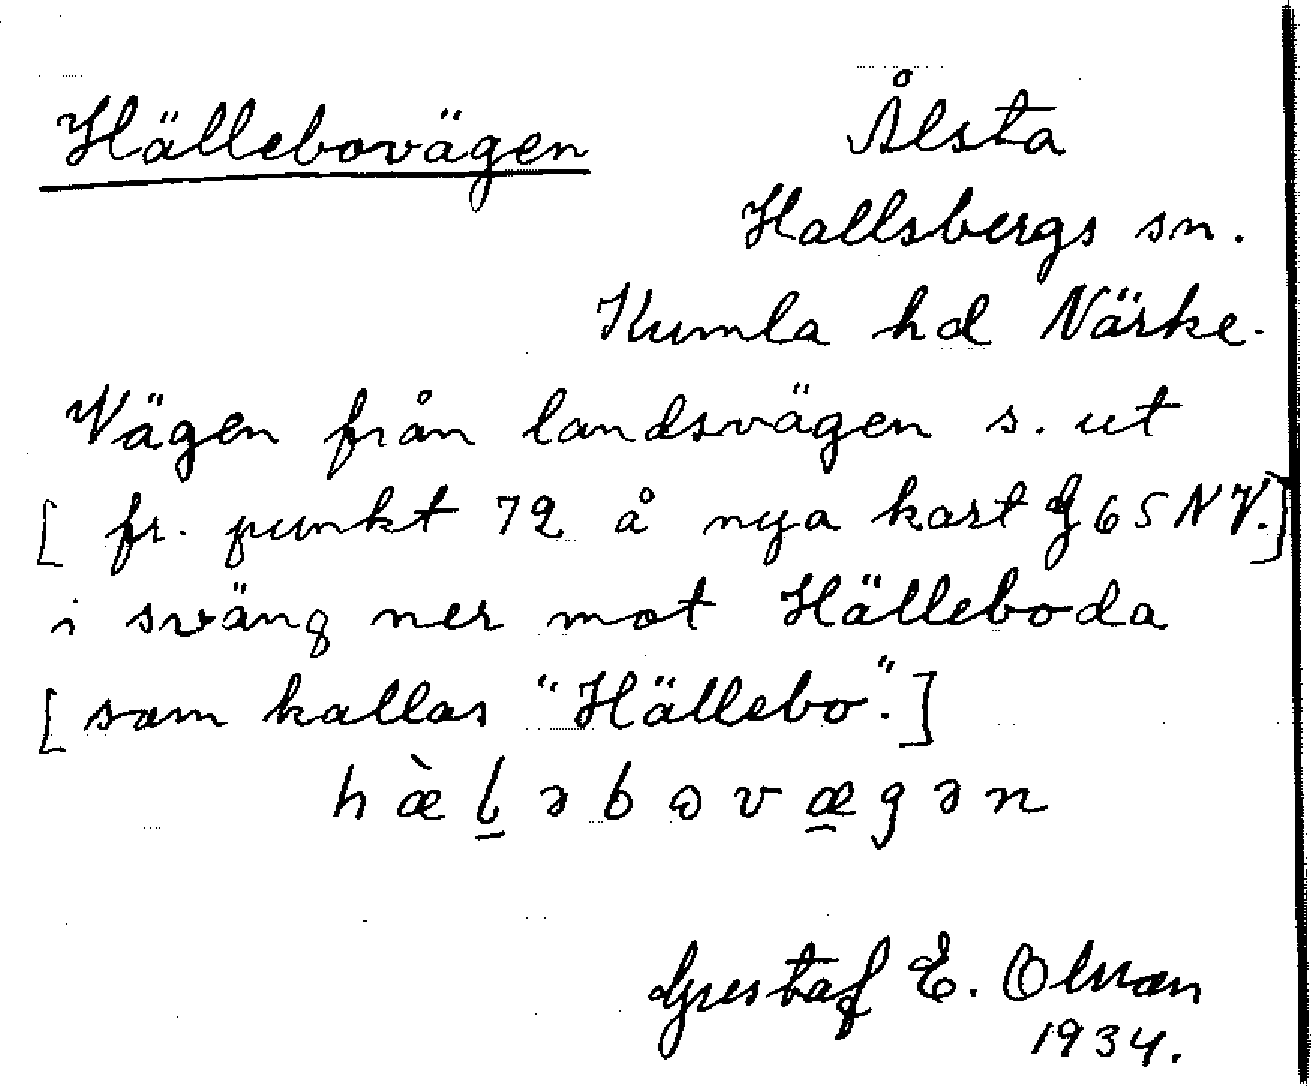 Hällebovägen
Ålsta
Hallsbergs sn.
Kumla hd Närke.
Vägen från landsvägen s. ut
[ fr. punkt 72 å nya kart G 65 NV.]
i sväng ner mot Hälleboda
[ som kallas "Hällebo".]
hæ̀l̲əbɷvæ̲gən
Gustaf E. Olsson
1934.